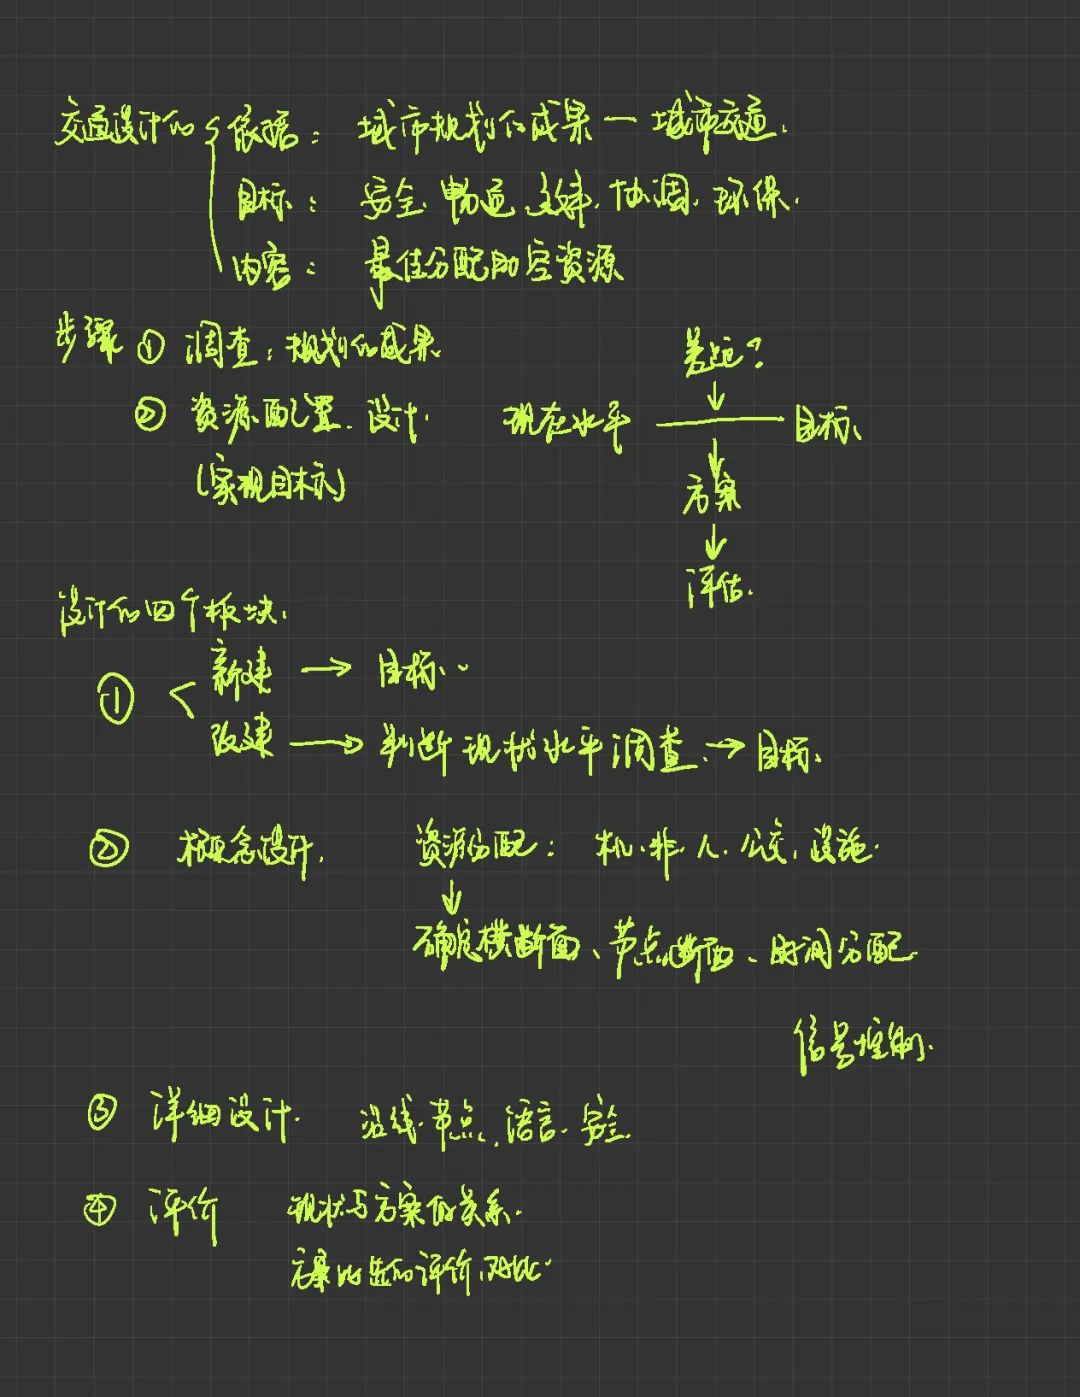 交通设计的 依据： 城市规划的成果 — 城市交通.
目标： 安全. 畅通. 效率. 协调. 环保.
内容： 最佳分配时空资源
步骤 ① 调查：规划的成果.
差距？
② 资源配置. 设计. 现在水平 目标.
(实现目标)
方案
评估.
设计的四个板块.
① 新建 → 目标.
改建 → 判断现状水平调查. → 目标.
② 概念设计. 资源分配： 机. 非. 人. 公交. 设施.
确定横断面、节点断面、时间分配.
信号控制.
③ 详细设计. 沿线. 节点. 语言. 安全.
④ 评价 现状与方案的关系.
方案比选的评价.